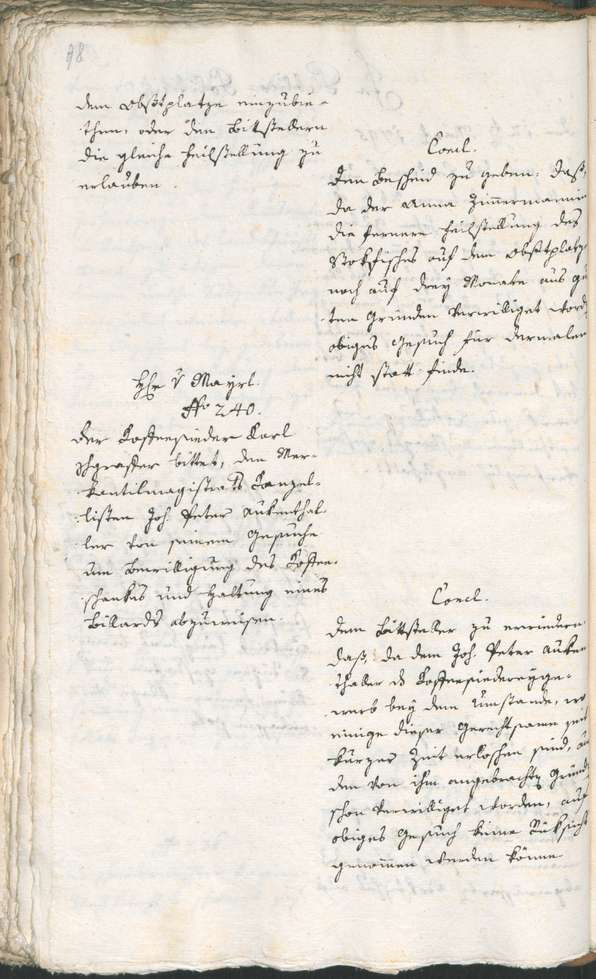 98
dem Obstplatze einzubie-
then, oder den Bittstellern
die gleiche Feilstellung zu
erlauben.
Concl.
Den Bescheid zu geben: daß,
da der Anna Zimmermannin
die fernere Feilstellung des
Stokfisches auf dem Obstplatze
noch auf drey Monate aus gu
ten Gründen verwilliget word
obiges Gesuch für dermalen
nicht statt finde.
H. v. Mayrl.
No 240.
Der Koffeesieder Karl
Schgraffer bittet, den Mer-
kantilmagistrats Kanzel-
listen Joh. Peter Aukenthal-
ler von seinem Gesuche
um Bewilligung des Koffee-
schankes und Haltung eines
Billards abzuweisen.
Concl.
Dem Bittsteller zu erwiedern
daß, da dem Joh. Peter Auken
thaler das Koffeesiederey Ge-
werb bey dem Umstande, wo
einige dieser Gerechtsamen seit
kurzer Zeit erloschen sind, aus
den von ihm angebrachten Gründ
schon verwilliget worden, auf
obiges Gesuch keine Rüksicht
genommen werden könne